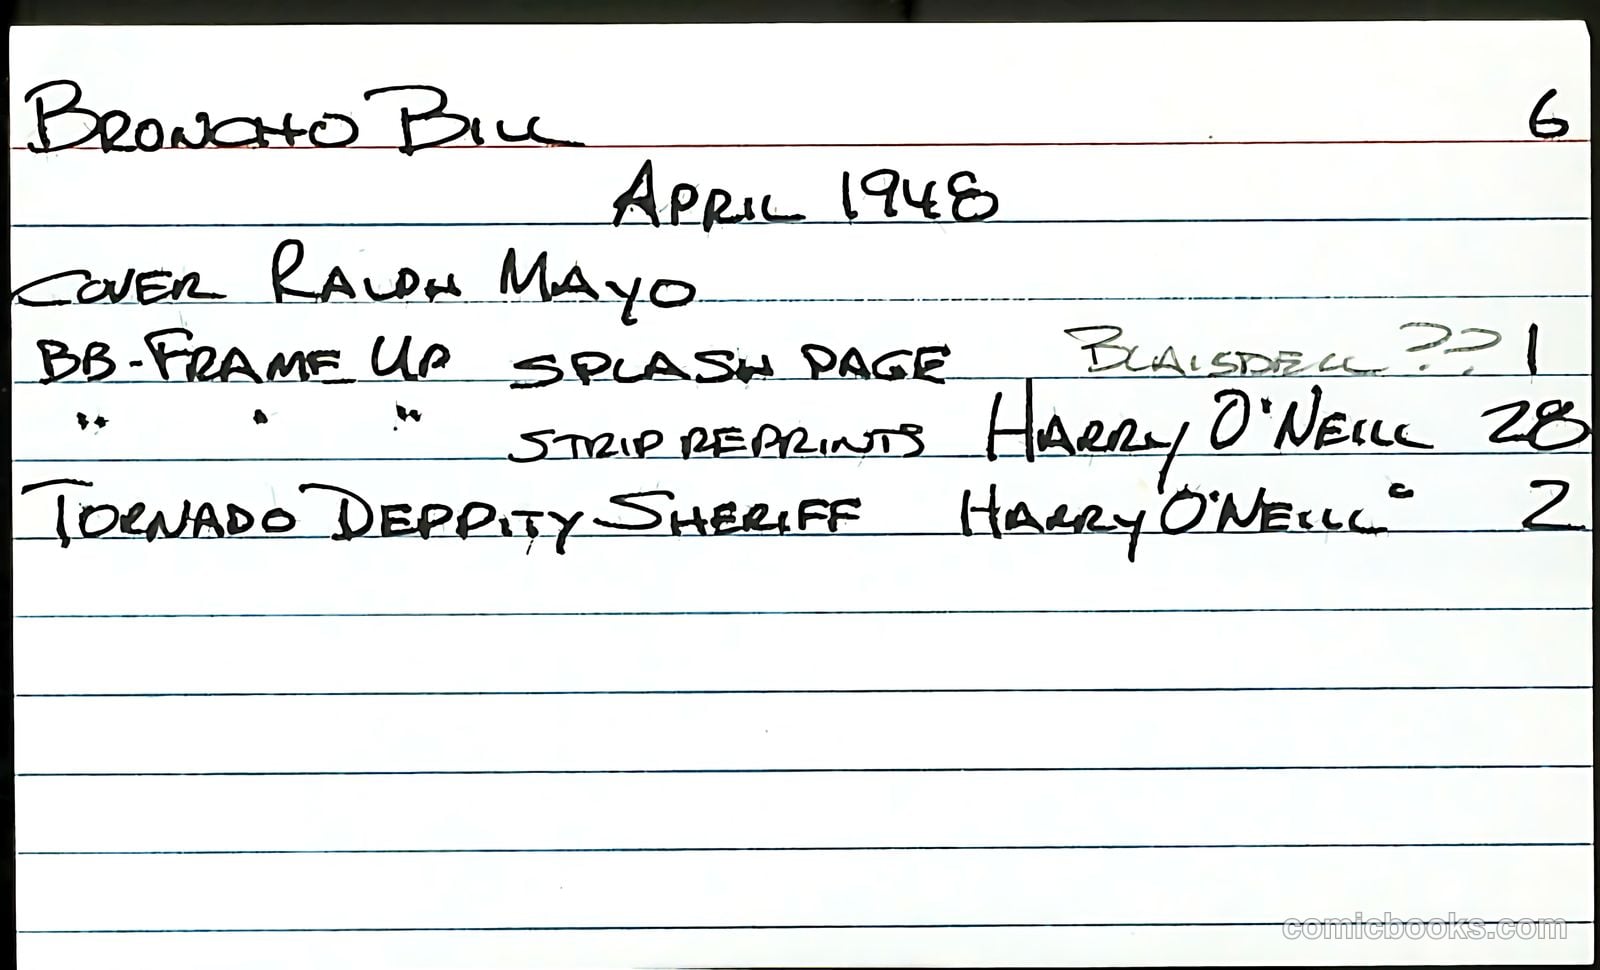 BRONCHO BILL 6
APRIL 1948
COVER RALPH MAYO
BB-FRAME UP SPLASH PAGE BLAISDELL ?? 1
" " " STRIP REPRINTS HARRY O'NEILL 28
TORNADO DEPPITY SHERIFF HARRY O'NEILL 2
comicbooks.com